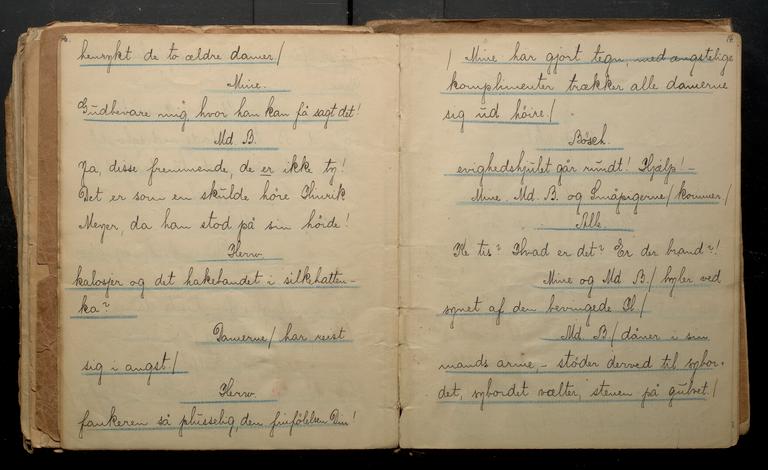 henrykt de to ældre damer/
Mine.
Gudbevare mig, hvor han kan få sagt det!
Md B.
Ja, disse fremmende, de er ikke ty!
Det er som en skulde höre
Meyer, da han stod på sin höide!
Herw.
kalosjer og det hakebandet i silkhatten-
ka?
Damerne/ har reist
sig i angst/
Herw.
fankeren så plusselig, den finfölelsen Din!
/ Mine har gjort tegn, med ængstelige
komplimenter trækker alle damerne
sig ud höire/
Bösch.
evighedshjulet går rundt! Hjælp! -
Mine. Md. B. og Småpigerne/kommer/
Alle.
Hvad er det? Er der brand?!
Mine og Md B./ hyler ved
synet af den bevingede H/
Md B/ dåner i sin
mands arme, - stöder derved til sybor-
det, sybordet vælter, stenen på gulvet./